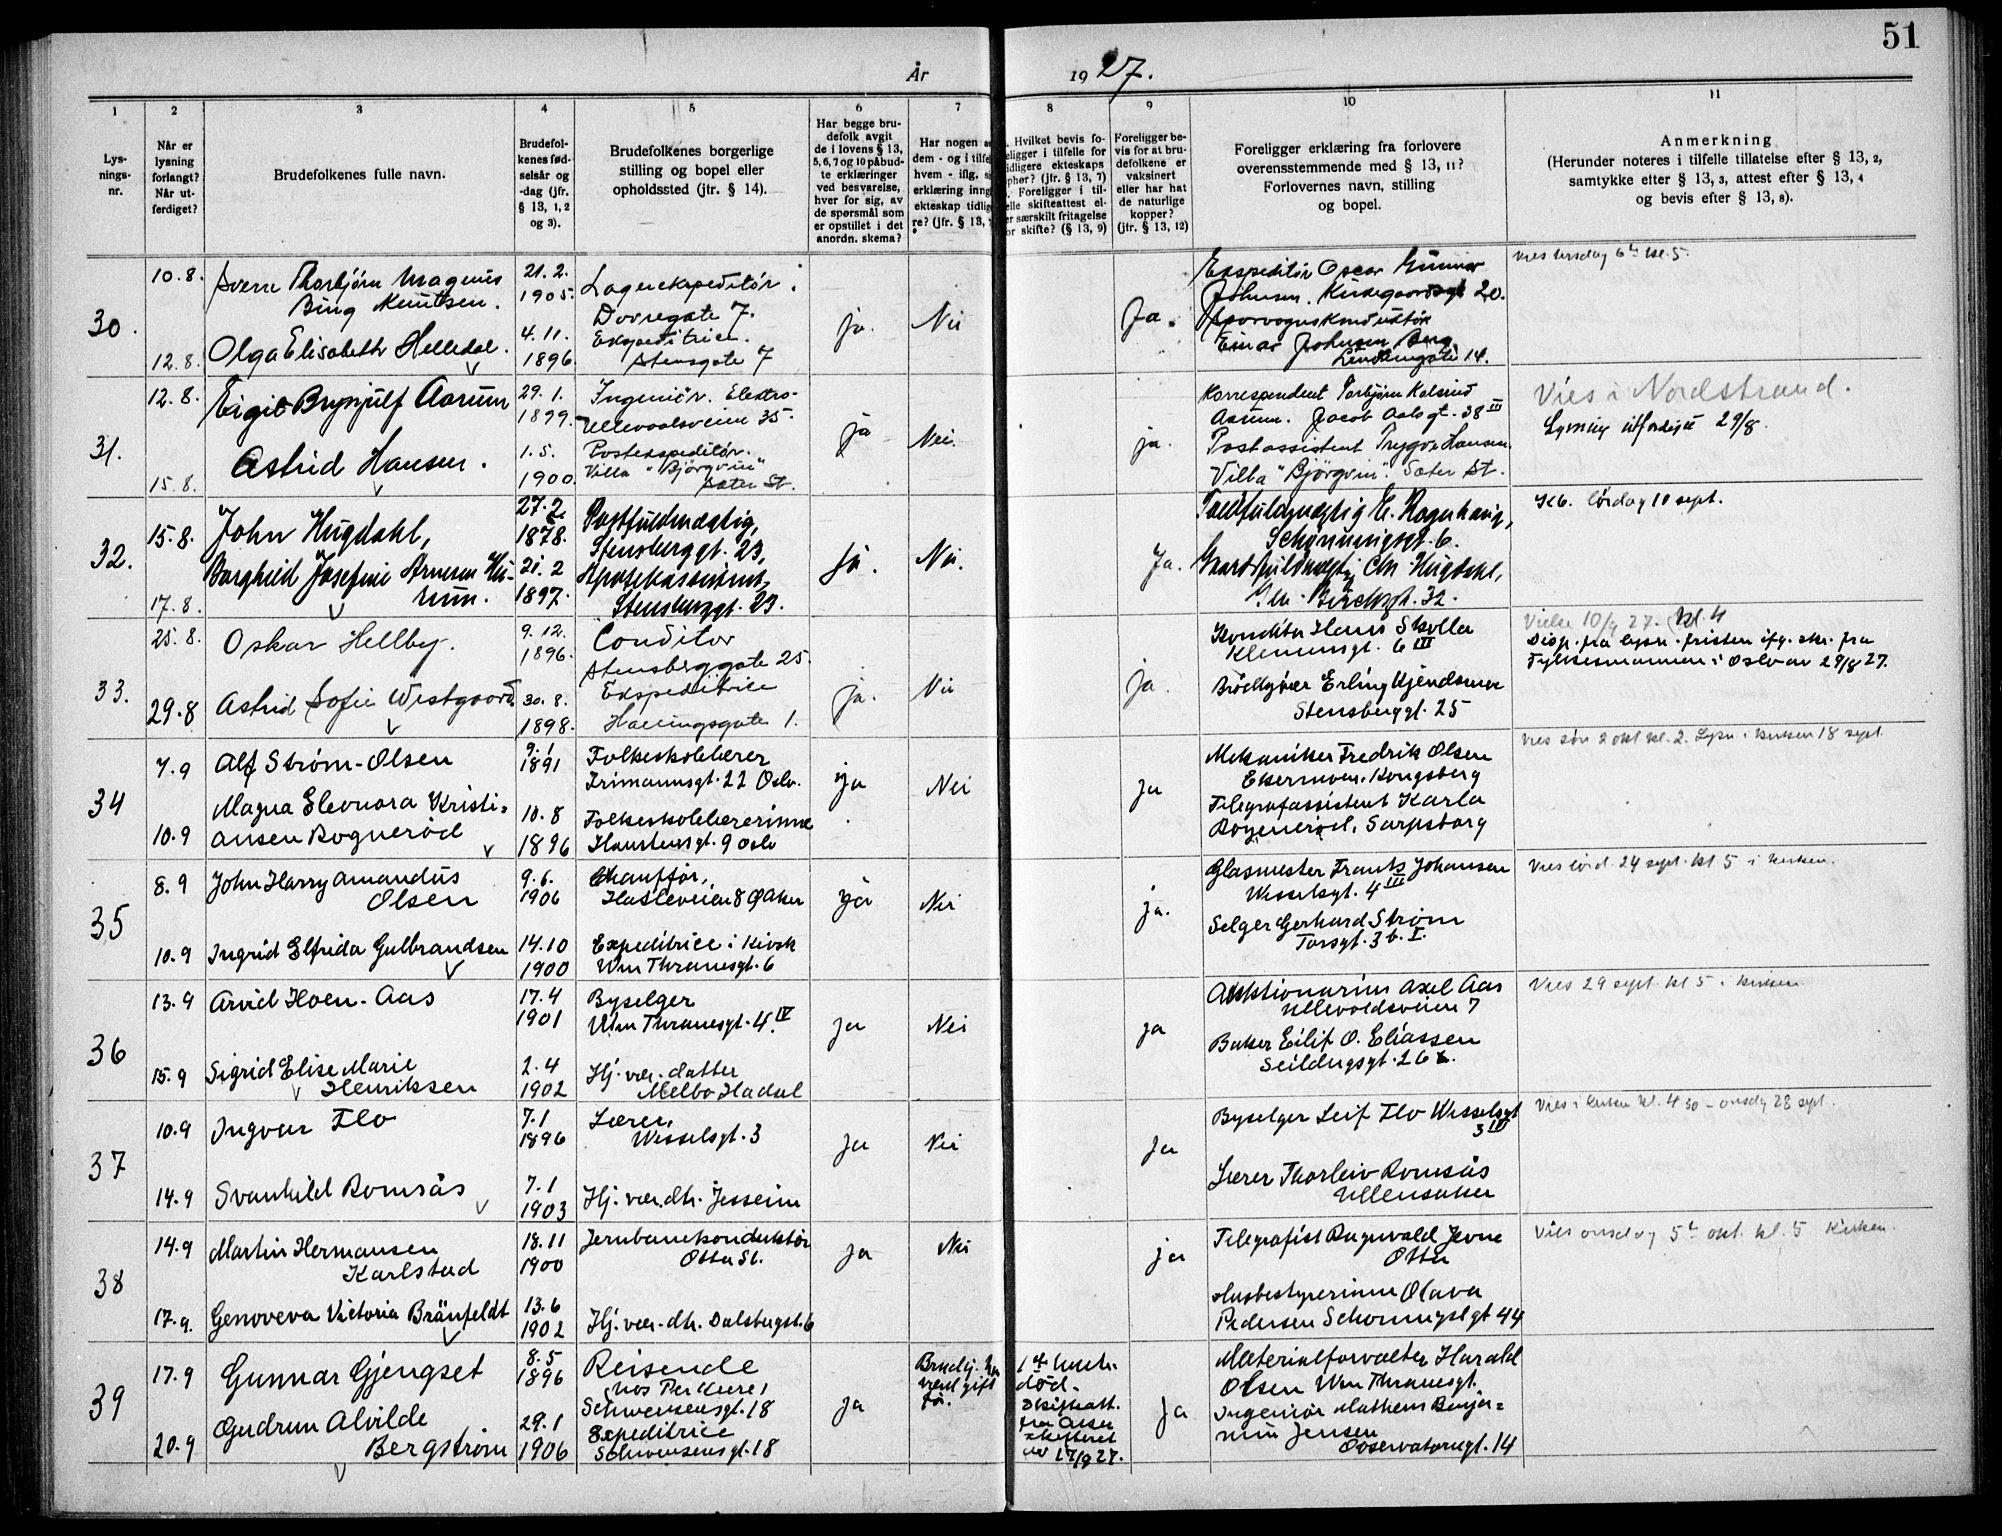 51
År 1927.
1 2 3 4 5 6 7 8 9 10 11
Lysnings-nr.
Når er lysning forlangt? Når utferdiget?
Brudefolkenes fulle navn.
Brudefolkenes fødselsår og -dag (jfr. § 13, 1, 2 og 3).
Brudefolkenes borgerlige stilling og bopel eller opholdssted (jfr. § 14).
Har begge brudefolk avgit de i lovens § 13, 5, 6, 7 og 10 påbudte erklæringer ved besvarelse, hver for sig, av de spørsmål som er opstillet i det anordn. skema?
Har nogen a
dem - og i tilfe
hvem - iflg. s
erklæring inng
ekteskap tidlig
re? (jfr. § 13,
Hvilket bevis fo-
eligger i tilfelle for
idligere ekteskaps
pher? (jfr. § 13, 7)
Foreligger i til-
elle skifteattest el-
r særskilt fritagelse
or skifte? (§ 13, 9)
Foreligger bevis for at brudefolkene er vaksinert eller har hat de naturlige kopper? (jfr. § 13, 12)
Foreligger erklæring fra forlovere overensstemmende med § 13, 11? Forlovernes navn, stilling og bopel.
Anmerkning
(Herunder noteres i tilfelle tillatelse efter § 13, 2,
samtykke efter § 13, 3, attest efter § 13, 4
og bevis efter § 13, 8).
30.
10.8.
12.8.
Sverre Thorbjörn Magnus
Bing Knutsen.
Olga Elisabeth Helledal.
21.2.
1905.
4.11.
1896
Lagerekspeditör.
Dovregate 7.
Ekspeditrice.
Stensgate 7
ja.
Nei
Ja.
Ekspeditör Oscar Gunnar
Johnsen. Kirkegaardsgt 20.
Sporvognskonduktör
Einar Johnsen Berg.
Lindemgate 14.
Vies tirsdag 6te kl. 5.
31.
12.8.
15.8.
Eigil Brynjulf Aarum
Astrid Hansen.
29.1.
1899.
1.5.
1900.
Ingeniör. Elektro-
Ullevaalsveien 35.
Postekspeditör.
Villa "Björgvin"
Sæter St.
ja
Nei.
ja.
Korrespondent Torbjörn
Aarum. Jacob Aalsgt. 38 III
Postassistent Trygve Hansen
Villa "Björgvin". Sæter St.
Vies i Nordstrand.
Lysning utferdiget 29/8.
32.
15.8.
17.8.
John Hugdahl,
Borghild Josefine Arnesen
27.2.
1878.
21.2
1897.
Postfuldmægtig,
Stensberggt. 23,
Stensberggt. 23.
ja.
Nei.
Ja.
Schönningsgt. 6.
Chr. Hugdahl,
gt. 32.
Kl. 6. lördag 10 sept.
33.
25.8.
29.8
Oskar Hellby.
Astrid Sofie Westgaard
9.12.
1896.
30.8.
1898.
Conditor
Stensberggate 25.
Ekspeditrice
1.
ja.
Nei
ja.
Konditor Hans Skolla
Klemensgt. 6 III
Erling Kjendsmo
Stensberggt. 25
Vielse 10/9 27. Kl. 4
Disp. fra lysn. fristen ifg. skr. fra
Fylkesmannen i Oslo av 29/8 27.
34
7.9
10.9
Alf Strøm-Olsen
Magna Eleonora Kristi-
ansen Rognerød
9.1
1891
10.8
1896
Folkeskolelærer
Frimannsgt. 22 Oslo.
Folkeskolelærerinne
Haustensgt. 9 Oslo
ja
Nei
ja
Mekaniker Fredrik Olsen
Kongsberg
Telegrafassistent Karla
Rognerød, Sarpsborg
Vies søn 2 okt kl. 2. Lysn i kirken 18 sept.
35
8.9
10.9
John Harry Amandus
Olsen
Ingrid Elfrida Gulbrandsen
9.6.
1906
14.10
1900
Chauffør,
Hasleveien 8 Ø Aker
Expeditrice i Kiosk
Wm Thranesgt. 6
ja
Nei
ja.
Glasmester Frants Johansen
Wesselsgt. 4 III
Selger Gerhard Strøm
Torsgt. 3 b. I.
Vies lørd. 24 sept. kl 5 i kirken.
36
13.9
15.9
Arvid Hoen-Aas
Sigrid Elise Marie
Henriksen
17.4
1901
2.4
1902
Byselger
Wm Thranesgt. 4. IV
Hj. vær. datter
Melbo Hadsel
ja
Nei
ja
Auktionarius Axel Aas
Ullevoldsveien 7
Baker Eilif O. Eliassen
Seildugsgt. 26
Vies 29 sept kl 5 i kirken.
37
10.9
14.9
Ingvar Flo
Svanhild Romsås
7.1
1896
7.1
1903
Lærer,
Wesselsgt. 3
Hj. vær. dtr. Jessheim
ja
Nei
ja
Byselger Leif Flo Wesselsgt
3 IV
Lærer Thorleiv Romsås
Ullensaker
Vies i kirken kl. 4 30 - onsdag 28 sept.
38
14.9
17.9.
Martin Hermansen
Karlstad
Genoveva Victoria Bränfeldt
18.11
1900
13.6
1902
Jernbanekonduktør
Otta St.
Hj. vær. dtr. Dalsbergst. 6
ja
Nei
ja
Telegrafist Ragnvald Jevne
Otta
Husbestyrerinne Olava
Pedersen Schønningsgt 44
Vies onsdag 5te okt. kl. 5 Kirken.
39
17.9
20.9
Gunnar Gjengset
Gudrun Alvilde
Bergstrøm
8.5
1896
29.1
1906
Reisende
hos Per Kure,
Schwensensgt. 18
Expeditrice
Schwensensgt. 18
ja
Brudg. har
vært gift
før.
1ste hustr.
død.
Skifteatt.
fra Aker
skifteret
av 17/9 27.
ja
Materialforvalter Harald
Olsen Wm Thranesgt.
Ingeniør Mathens Benja-
min Jensen
Observatoriegt. 14